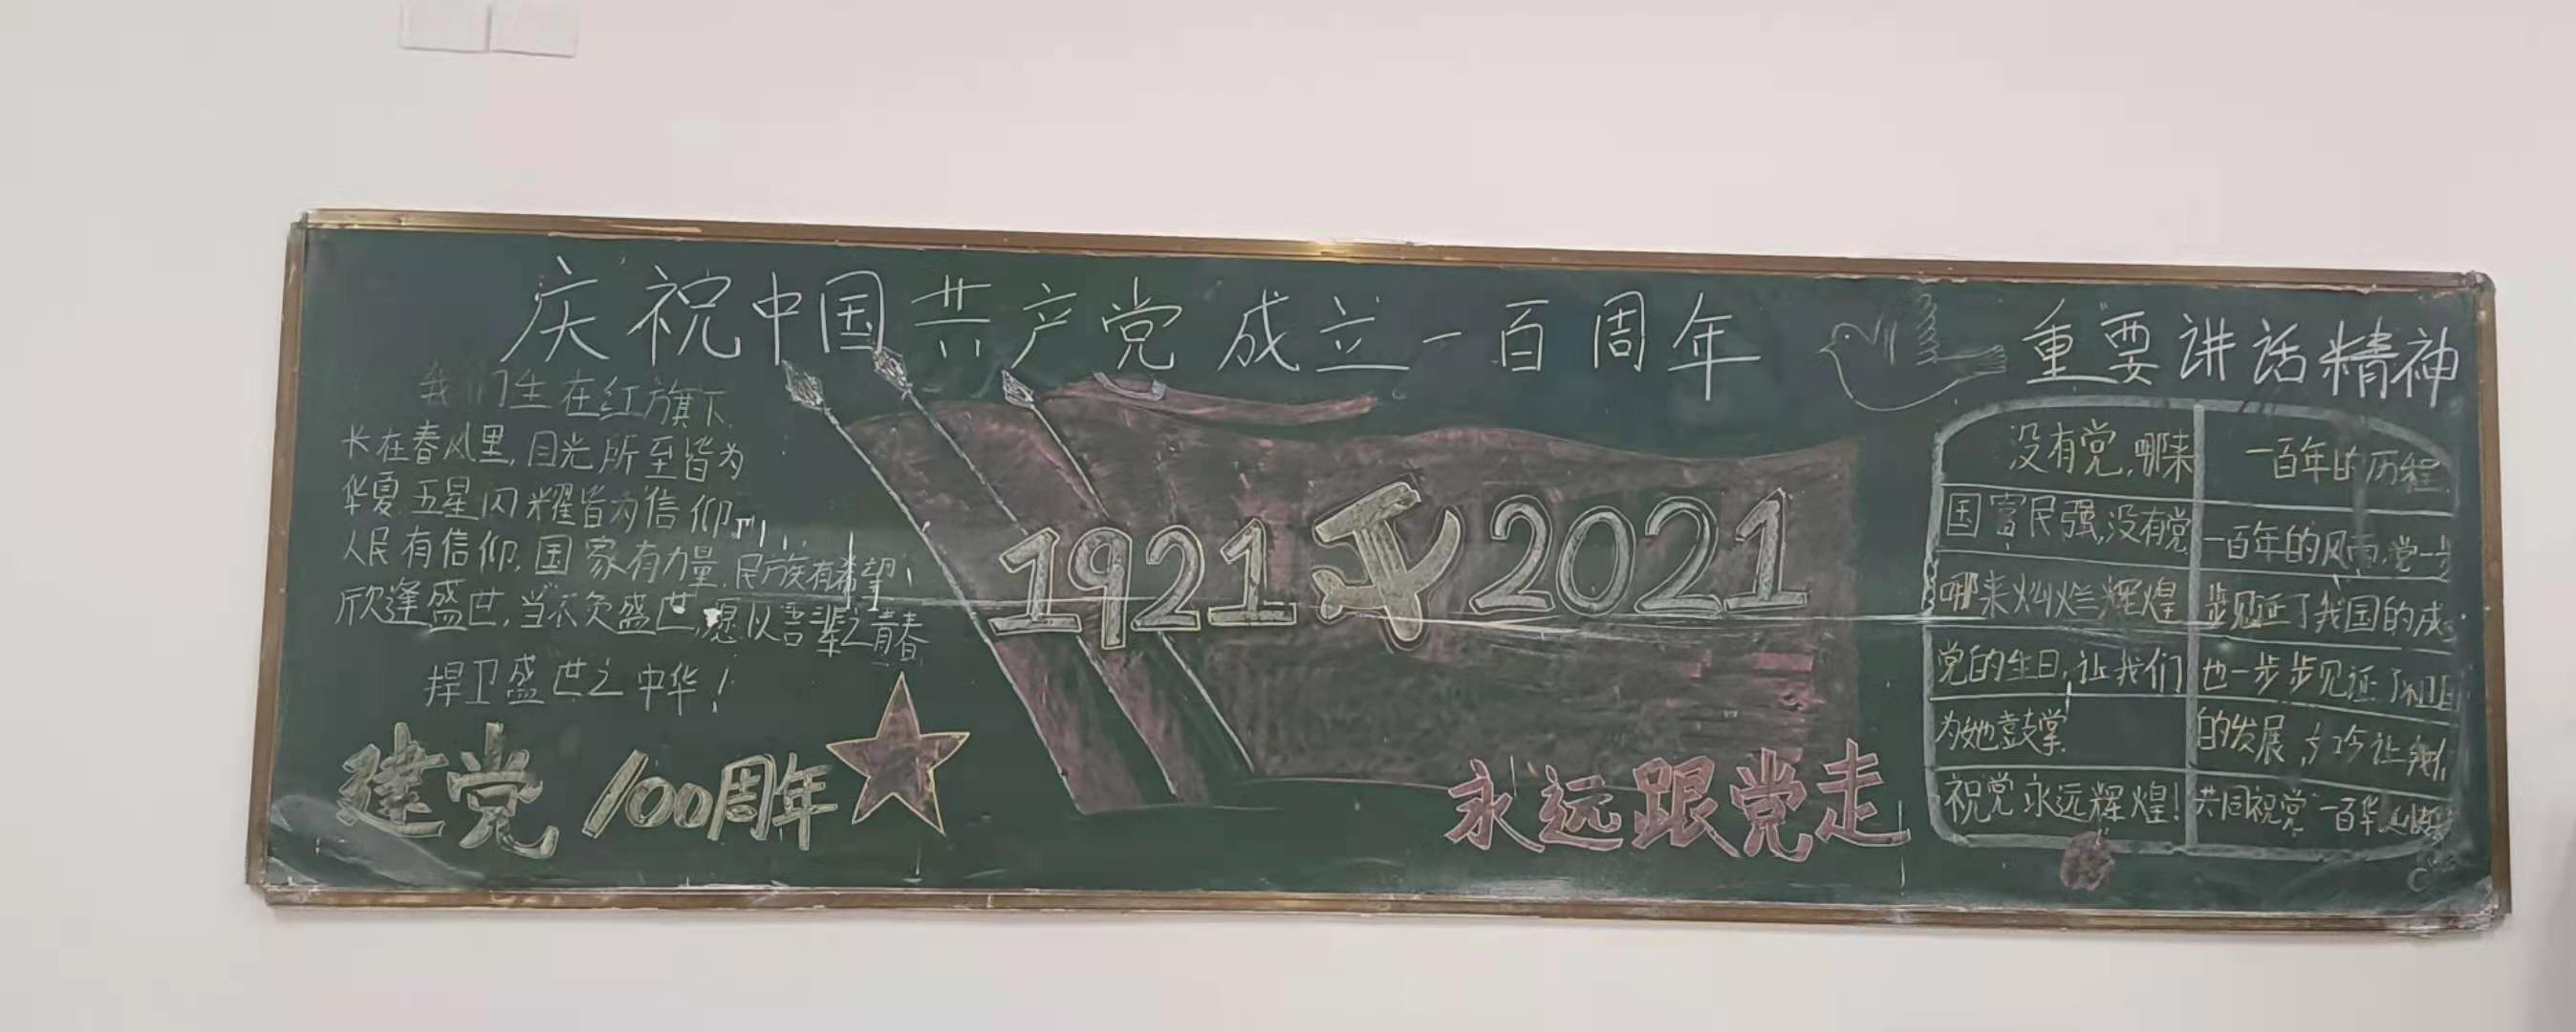 庆祝中国共产党成立一百周年
重要讲话精神
我们生在红旗下
长在春风里,目光所至皆为
华夏 五星闪耀皆为信仰
人民有信仰,国家有力量,民族有希望
欣逢盛世,当不负盛世,愿以吾辈之青春
捍卫盛世之中华!
建党100周年
1921 2021
永远跟党走
没有党,哪来
国富民强,没有党
哪来灿烂辉煌
党的生日,让我们
为她鼓掌
祝党永远辉煌!
一百年的历程
一百年的风雨,党一步
步见证了我国的成
也一步步见证了祖国
的发展,让我们
共同祝党一百华